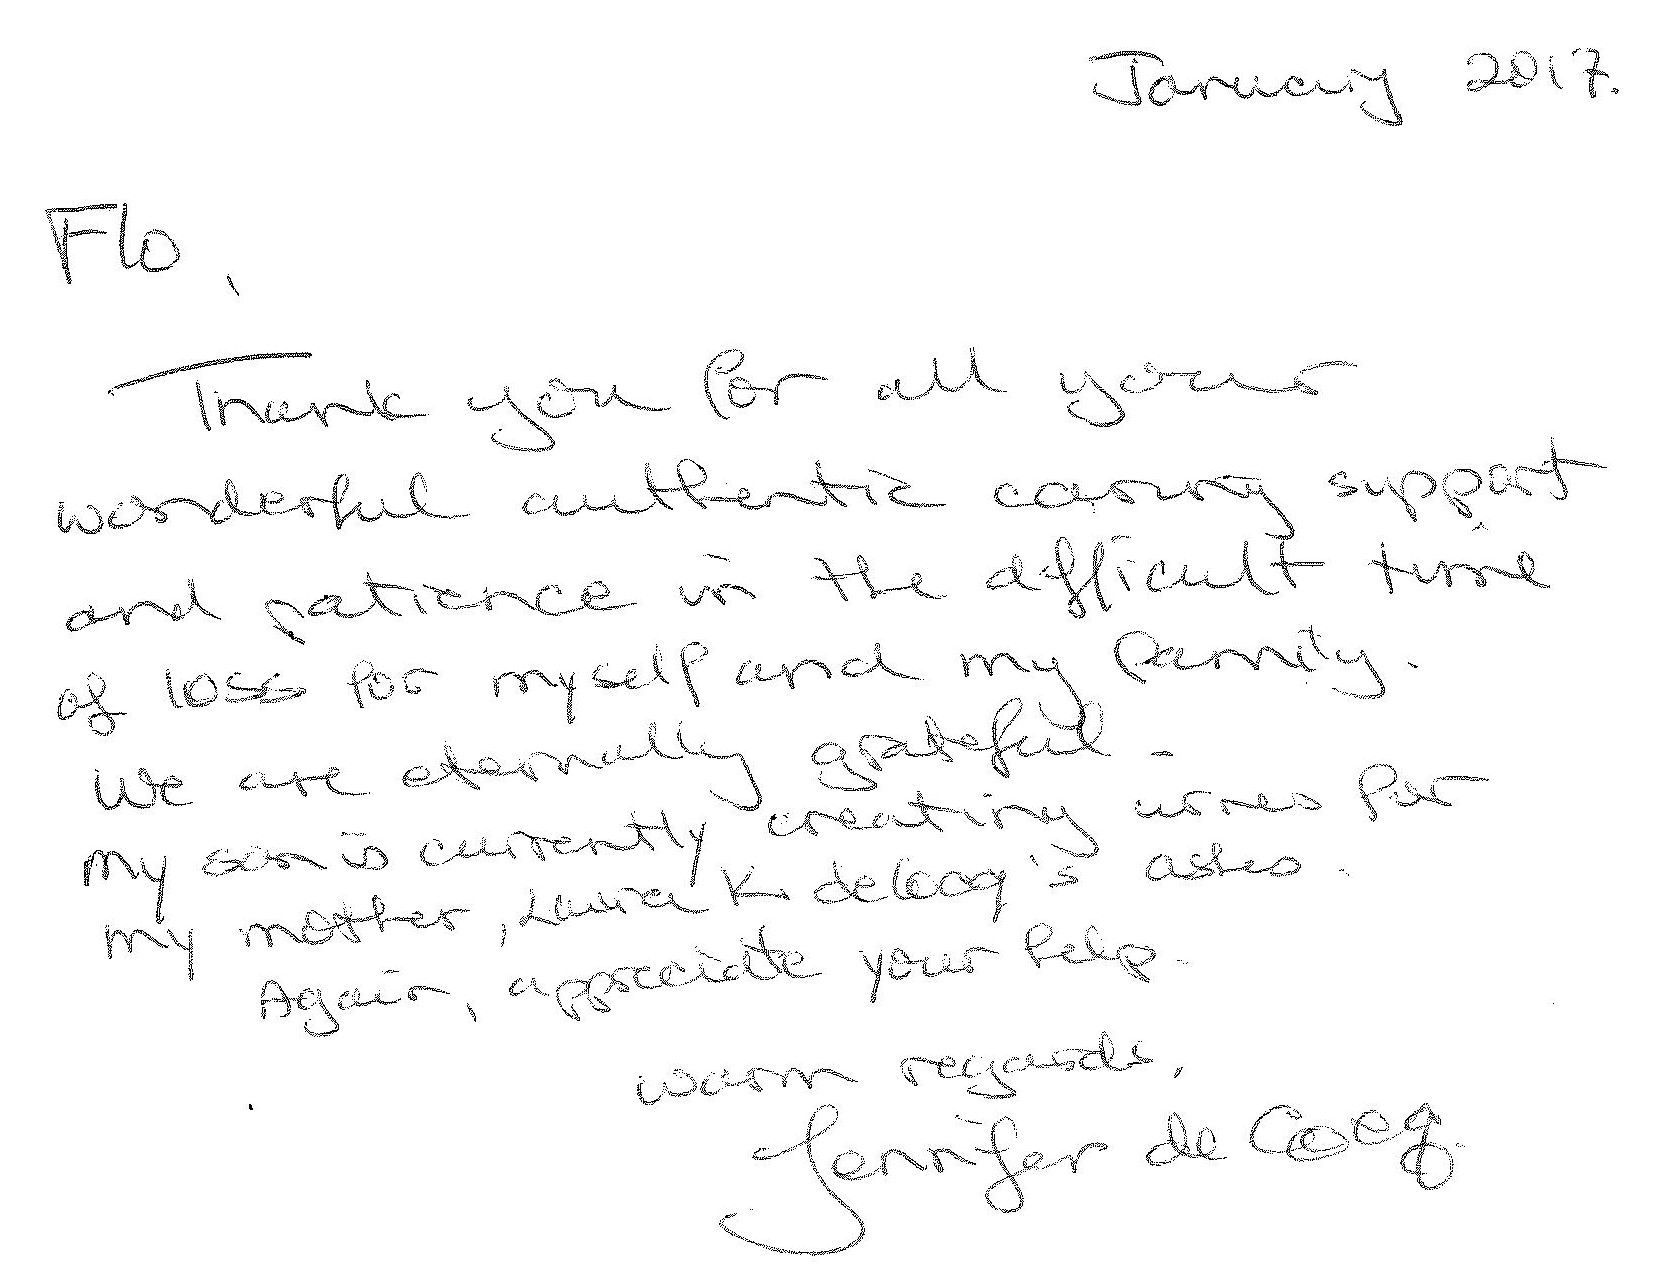 January 2017.
Flo,
Thank you for all your
wonderful authentic caring support
and patience in the difficult time
of loss for myself and my family.
We are eternally grateful.
My son is currently creating urnes for
my mother, Laura K. deCocq's ashes.
Again, appreciate your help.
warm regards,
Jennifer de Cocq.